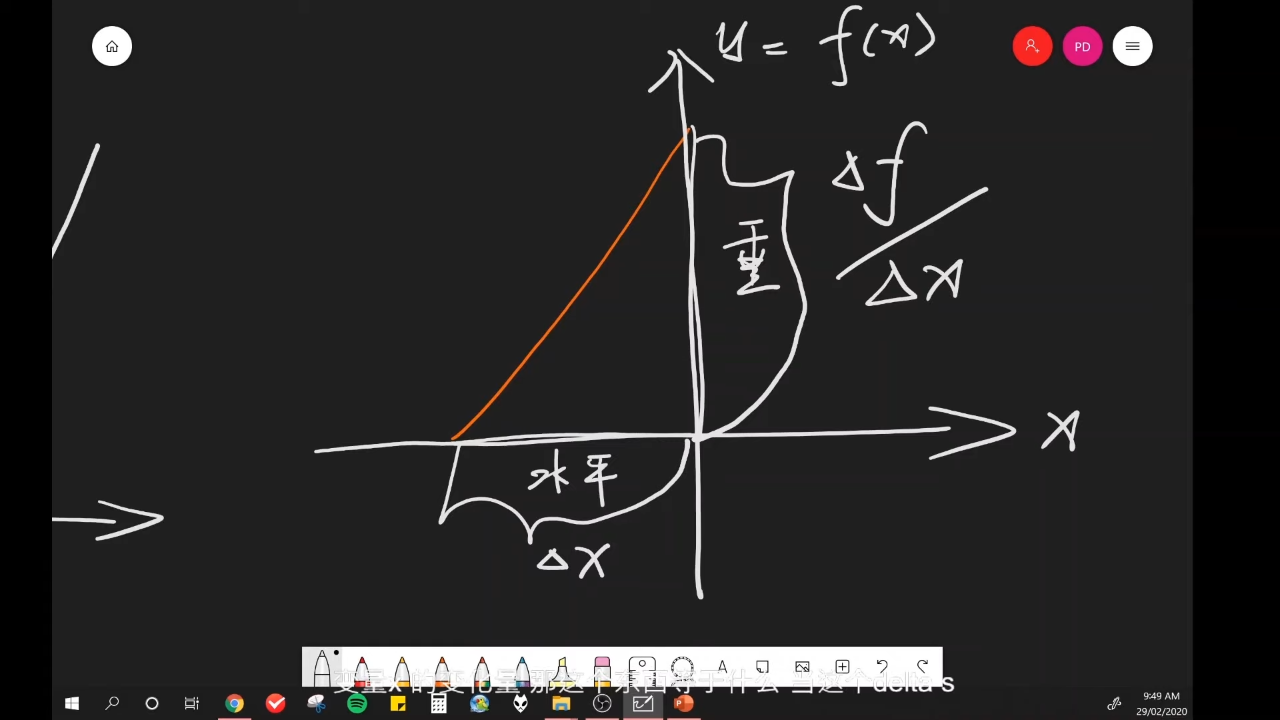 y = f(x)
PD
Δf
Δx
垂
x
水平
Δx
变量x的变化量 那这个东西等于什么 当这个delta s
A
9:49 AM
29/02/2020